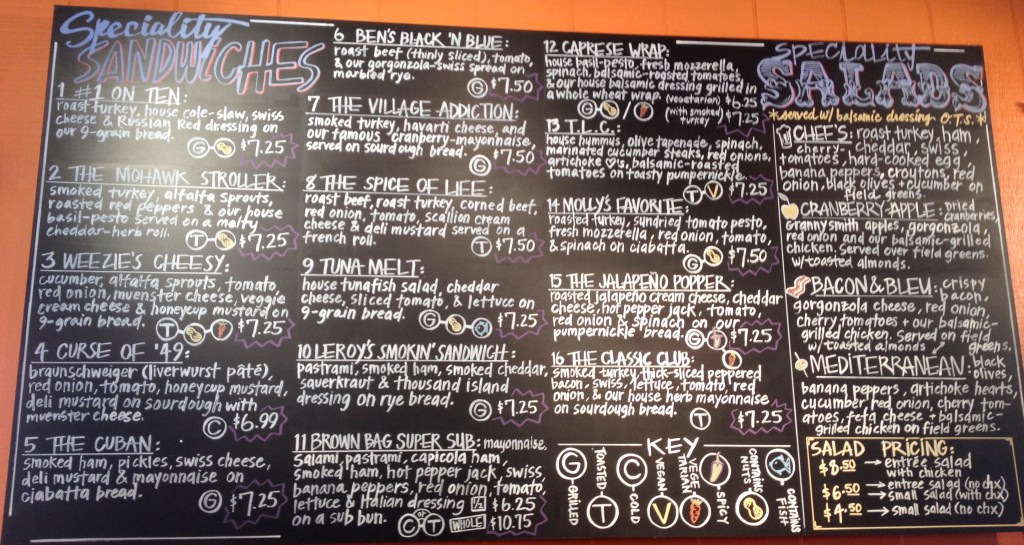 Speciality
SANDWICHES
1 #1 ON TEN:
roast turkey, house cole-slaw, swiss
cheese & Russian Red dressing on
our 9-grain bread.
G $7.25
2 THE MOHAWK STROLLER:
smoked turkey, alfalfa sprouts,
roasted red peppers & our house
basil-pesto served on a malty
cheddar-herb roll.
T $7.25
3 WEEZIE'S CHEESY:
cucumber, alfalfa sprouts, tomato,
red onion, muenster cheese, veggie
cream cheese & honeycup mustard on
9-grain bread.
T $7.25
4 CURSE OF '49:
braunschweiger (liverwurst pâté),
red onion, tomato, honeycup mustard,
deli mustard on sourdough with
muenster cheese.
C $6.99
5 THE CUBAN:
smoked ham, pickles, swiss cheese,
deli mustard & mayonnaise on
ciabatta bread.
G $7.25
6 BEN'S BLACK 'N BLUE:
roast beef (thinly sliced), tomato,
& our gorgonzola-swiss spread on
marbled rye.
G $7.50
7 THE VILLAGE ADDICTION:
smoked turkey, havarti cheese, and
our famous cranberry-mayonnaise
served on sourdough bread.
G $7.50
8 THE SPICE OF LIFE:
roast beef, roast turkey, corned beef,
red onion, tomato, scallion cream
cheese & deli mustard served on a
french roll.
T $7.50
9 TUNA MELT:
house tunafish salad, cheddar
cheese, sliced tomato, & lettuce on
9-grain bread.
G $7.25
10 LEROY'S SMOKIN' SANDWICH:
pastrami, smoked ham, smoked cheddar,
sauerkraut & thousand island
dressing on rye bread.
G $7.25
11 BROWN BAG SUPER SUB: mayonnaise,
salami, pastrami, capicola ham,
smoked ham, hot pepper jack, swiss,
banana peppers, red onion, tomato,
lettuce & italian dressing ½ $6.25
on a sub bun. C OR T WHOLE $10.75
12 CAPRESE WRAP:
house basil-pesto, fresh mozzerella,
spinach, balsamic-roasted tomatoes
& our house balsamic dressing grilled in
a whole wheat wrap. (vegetarian) $6.25
G / (with smoked turkey) $7.25
13 T.L.C.:
house hummus, olive tapenade, spinach,
marinated cucumber steaks, red onions,
artichoke ♡s, balsamic-roasted
tomatoes on toasty pumpernickle.
T V $7.25
14 MOLLY'S FAVORITE:
roasted turkey, sundried tomato pesto,
fresh mozzerella, red onion, tomato,
& spinach on ciabatta.
G $7.50
15 THE JALAPEÑO POPPER:
roasted jalapeño cream cheese, cheddar
cheese, hot pepper jack, tomato,
red onion & spinach on our
pumpernickle bread.
G $7.25
16 THE CLASSIC CLUB:
smoked turkey, thick-sliced peppered
bacon, swiss, lettuce, tomato, red
onion, & our house herb mayonnaise
on sourdough bread.
T $7.25
KEY
G GRILLED
TOASTED T
C COLD
VEGAN V
VEGETARIAN
SPICY
CONTAINS NUTS
CONTAINS FISH
SPECIALITY
SALADS
*served w/ balsamic dressing O.T.S.*
CHEF'S: roast turkey, ham
cherry cheddar, swiss,
tomatoes, hard-cooked egg,
banana peppers, croutons, red
onion, black olives + cucumber on
field greens.
CRANBERRY APPLE: dried
cranberries,
grannysmith apples, gorgonzola,
red onion and our balsamic-grilled
chicken. Served over field greens
w/toasted almonds.
BACON & BLEU: crispy
bacon,
gorgonzola cheese, red onion,
cherry tomatoes + our balsamic-
grilled chicken. Served on field
w/ toasted almonds greens.
MEDITERRANEAN: black
olives,
banana peppers, artichoke hearts,
cucumber, red onion, cherry tom-
atoes, feta cheese + balsamic-
grilled chicken on field greens.
SALAD PRICING:
$8.50 → entrée salad
with chicken
$6.50 → entree salad (no chx)
→ small salad (with chx)
$4.50 → small salad (no chx)